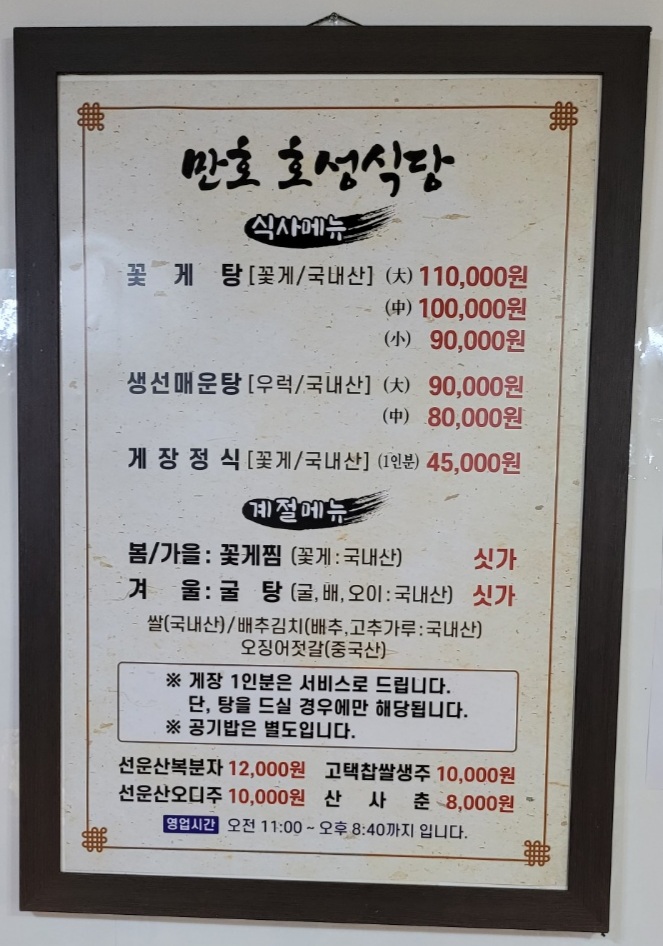 만호 호성식당
식사메뉴
꽃 게 탕 [꽃게/국내산] (大) 110,000원
(中) 100,000원
(小) 90,000원
생선매운탕 [우럭/국내산] (大) 90,000원
(中) 80,000원
게 장 정 식 [꽃게/국내산] (1인분) 45,000원
계절메뉴
봄/가을 : 꽃게찜 (꽃게 : 국내산) 싯가
겨 울 : 굴 탕 (굴, 배, 오이 : 국내산) 싯가
쌀(국내산)/배추김치(배추,고추가루:국내산)
오징어젓갈(중국산)
※ 게장 1인분은 서비스로 드립니다.
단, 탕을 드실 경우에만 해당됩니다.
※ 공기밥은 별도입니다.
선운산복분자 12,000원 고택찹쌀생주 10,000원
선운산오디주 10,000원 산 사 춘 8,000원
영업시간 오전 11:00 ~ 오후 8:40까지 입니다.